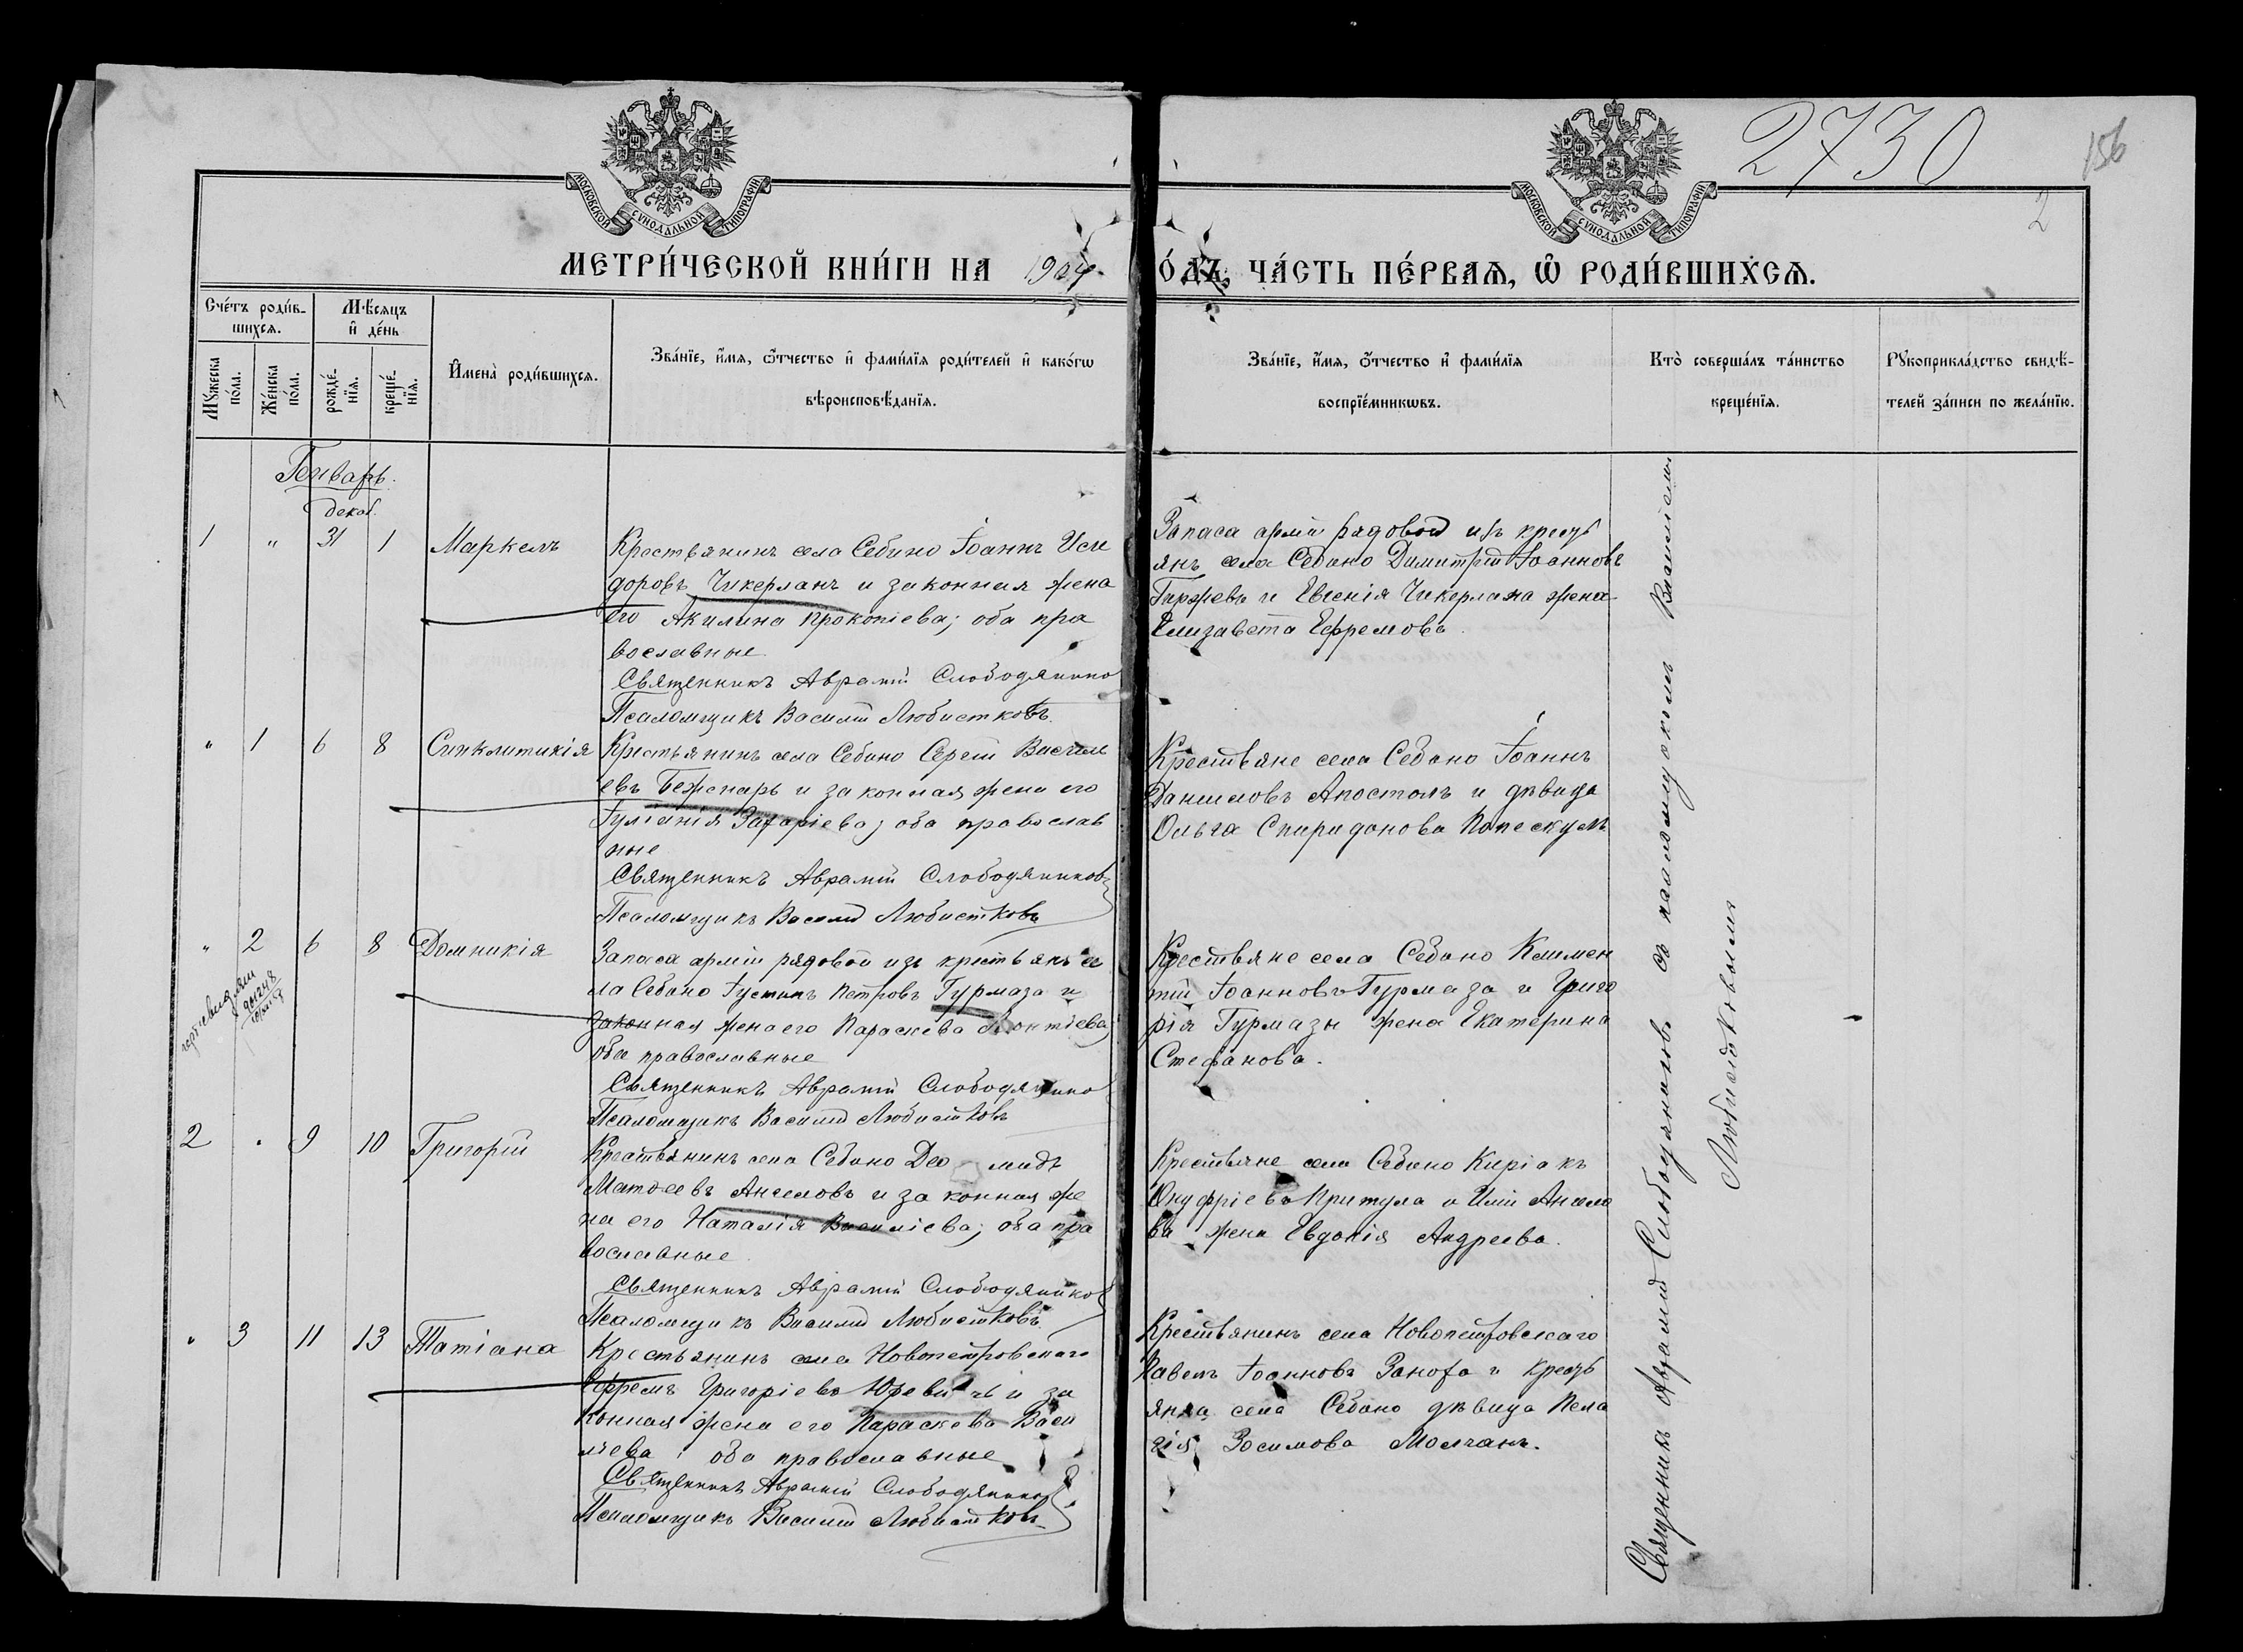 МОСКОВСКОЙ СѴНОДАЛЬНОЙ ТИПОГРАФІИ
МОСКОВСКОЙ СѴНОДАЛЬНОЙ ТИПОГРАФІИ
2730
156
2
МЕТРИ́ЧЕСКОЙ КНИ́ГИ НА 1904
О́ДЪ, ЧА́СТЬ ПЕ́РВАѦ, Ѡ҆ РОДИ́ВШИХСѦ.
Сче́тъ роди́в-
шихсѧ.
Мꙋ́жеска по́ла.
Же́нска по́ла.
Мѣ́сѧцъ
и҆ де́нь
рожде́-
нїѧ.
креще́-
нїѧ.
И҆мена̀ роди́вшихсѧ.
Зва́нїе, и҆́мѧ, ѻ҆́тчество и҆ фами́лїѧ роди́телей и҆ како́гѡ
вѣроисповѣ́данїѧ.
Зва́нїе, и҆́мѧ, ѻ҆́тчество и҆ фами́лїѧ
воспрїе́мникѡвъ.
Кто̀ соверша́лъ та́инство
креще́нїѧ.
Рꙋкоприкла́дство свидѣ́-
телей за́писи по жела́нїю.
Генварь.
декаб.
1 " 31 1 Маркелъ
Крестьянинъ села Себино Іоаннъ Иси
доровъ Чикерланъ и законная жена
его Акилина Прокопіева; оба пра
вославные
Священникъ Аврамій Слободянико
Псаломщикъ Василій Любистковъ
Запаса арміи рядовой изъ кресть
янъ села Себино Димитрій Іоанновъ
и Евгенія Чикерлана жена
Елизавета Ефремова
" 1 6 8 Синклитикія
Крестьянинъ села Себино Сергій Василь
евъ Беженарь и законная жена его
Іуліанія Захаріева; оба православ
ные
Священникъ Аврамій Слободяников
Псаломщикъ Василій Любистковъ
Крестьяне села Себино Іоаннъ
Данииловъ Апостолъ и дѣвица
Ольга Спиридонова Попескулъ
" 2 6 8 Домникія
Запаса арміи рядовой изъ крестьянъ се
ла Себино Іустинъ Петровъ Гурмаза и
законная жена его Параскева Леонтіева;
оба православные
Священникъ Аврамій Слободянико
Псаломщикъ Василій Любистковъ
Крестьяне села Себино Климен
тій Іоанновъ Гурмаза и Григо
рія Гурмазы жена Екатерина
Стефанова.
2 " 9 10 Григорій
Крестьянинъ села Себино Део мидъ
Матѳеевъ Ангеловъ и законная же
на его Наталія Василіева; оба пра
вославные
Священникъ Аврамій Слободянико
Псаломщикъ Василій Любистковъ
Крестьяне села Себино Киріакъ
Онуфріевъ Притула и Иліи Ангело
ва жена Евдокія Андреева.
" 3 11 13 Татіана
Крестьянинъ села Новопетровскаго
Ефремъ Григоріевъ и за
конная жена его Параскева Васи
ліева; оба православные
Священникъ Аврамій Слободянико
Псаломщикъ Василій Любистков
Крестьянинъ села Новопетровскаго
Павелъ Іоанновъ и кресть
янка села Себино дѣвица Пела
гія Зосимова Молчанъ.
Священникъ Аврамій Слободяниковъ съ псаломщикомъ Василіемъ
Любистковымъ